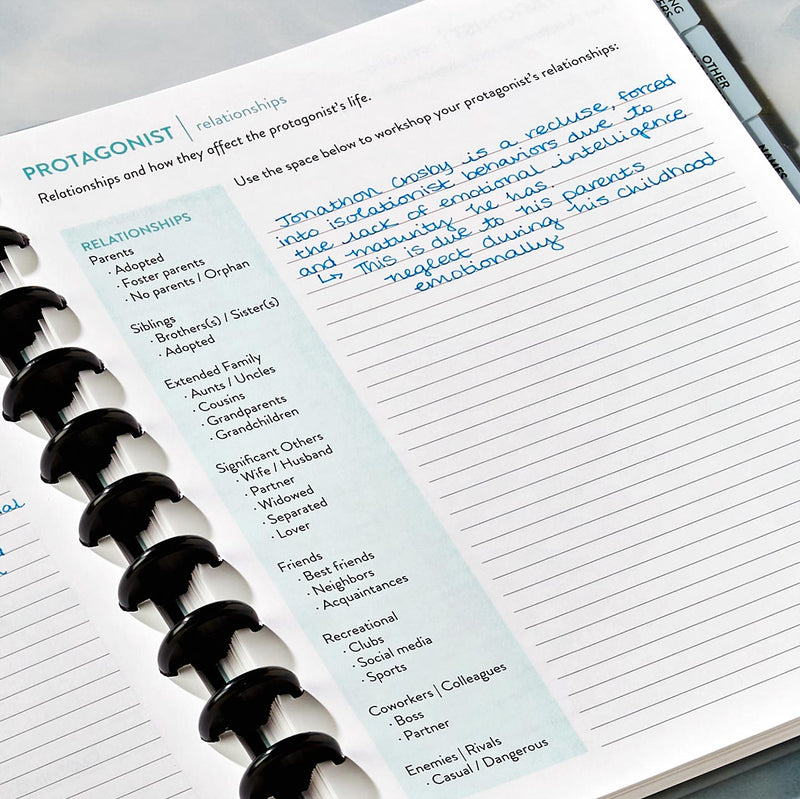 PROTAGONIST | relationships
Relationships and how they affect the protagonist's life.
Use the space below to workshop your protagonist's relationships:
RELATIONSHIPS
Parents
· Adopted
· Foster parents
· No parents / Orphan
Siblings
· Brothers(s) / Sister(s)
· Adopted
Extended Family
· Aunts / Uncles
· Cousins
· Grandparents
· Grandchildren
Significant Others
· Wife / Husband
· Partner
· Widowed
· Separated
· Lover
Friends
· Best friends
· Neighbors
· Acquaintances
Recreational
· Clubs
· Social media
· Sports
Coworkers | Colleagues
· Boss
· Partner
Enemies | Rivals
· Casual / Dangerous
Jonathon Crosby is a recluse, forced
into isolationist behaviors due to
the lack of emotional intelligence
and maturity he has.
↳ This is due to his parents
neglect during his childhood
emotionally
OTHER
NAMES